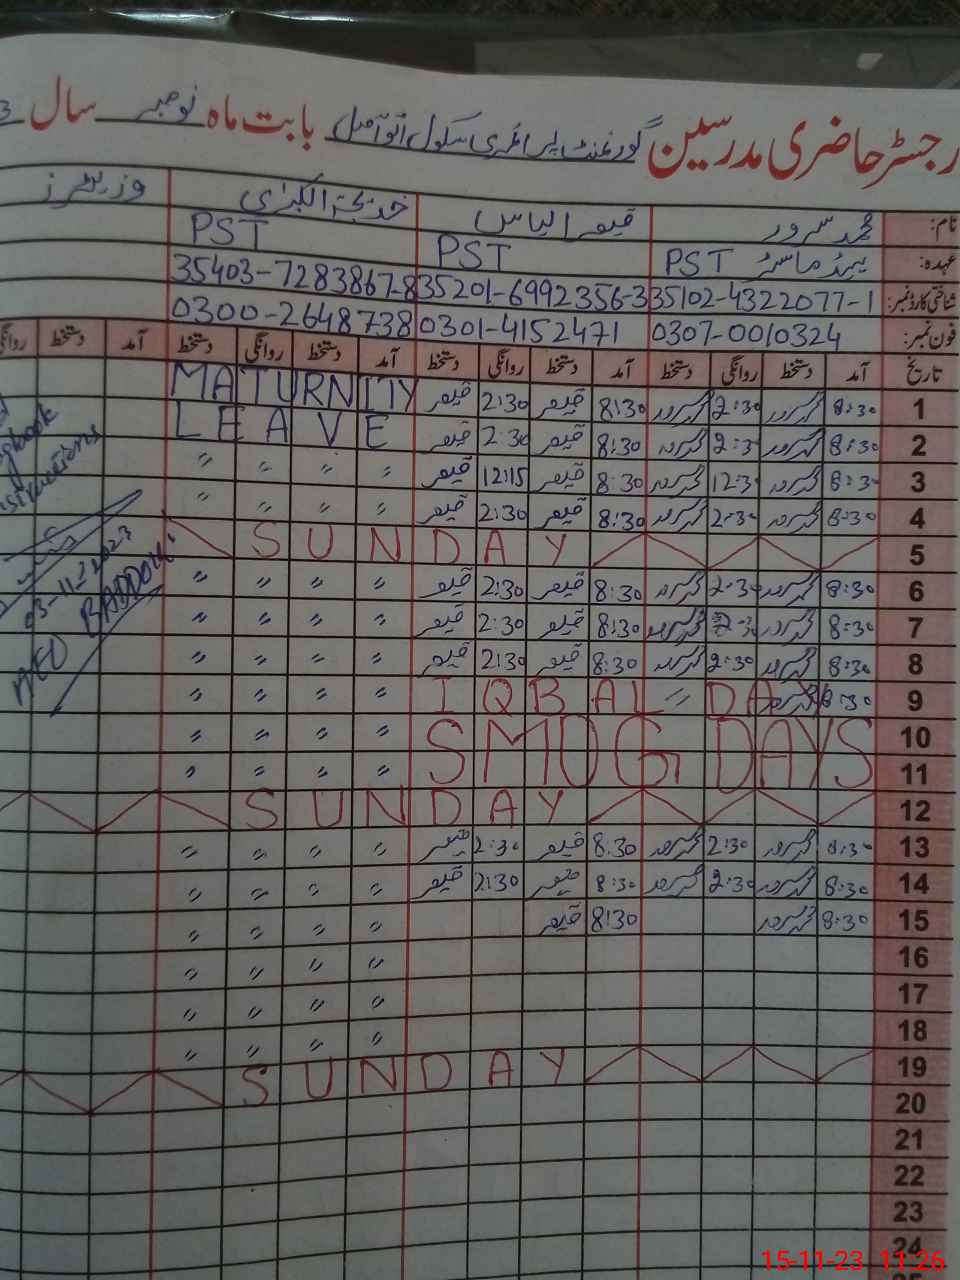 رجسٹر حاضری مدرسین گورنمنٹ پرائمری سکول آتو آصل بابت ماہ نومبر سال 3
نام: محمد سرور قیصر الیاس خدیجۃ الکبریٰ وزیٹرز
عہدہ: ہیڈ ماسٹر PST PST PST
شناختی کارڈ نمبر: 35102-4322077-1 35201-6992356-3 35403-7283867-8
فون نمبر: 0307-0010324 0301-4152471 0300-2648738
تاریخ آمد دستخط روانگی دستخط آمد دستخط روانگی دستخط آمد دستخط روانگی دستخط آمد دستخط روانگی
1 8:30 سرور 2:30 سرور 8:30 قیصر 2:30 قیصر MATURNITY
2 8:30 سرور 2:3 سرور 8:30 قیصر 2:30 قیصر LEAVE
3 8:30 سرور 12:3 سرور 8:30 قیصر 12:15 قیصر " " " "
4 8:30 سرور 2:30 سرور 8:30 قیصر 2:30 قیصر " " " "
5 SUNDAY
6 8:30 سرور 2:30 سرور 8:30 قیصر 2:30 قیصر " " " "
7 8:30 سرور 2:30 سرور 8:30 قیصر 2:30 قیصر " " " "
8 8:30 سرور 2:30 سرور 8:30 قیصر 2:30 قیصر " " " "
9 8:30 سرور IQBAL " DAY " " " "
10 SMOG DAYS " " " "
11 " " " "
12 SUNDAY
13 8:30 سرور 2:30 سرور 8:30 قیصر 2:30 قیصر " " " "
14 8:30 سرور 2:30 سرور 8:30 قیصر 2:30 قیصر " " " "
15 8:30 سرور 8:30 قیصر " " " "
16 " " " "
17 " " " "
18 " " " "
19 SUNDAY
20
21
22
23
24
03-11-2023
AEO BADDOKI
15-11-23 11:26